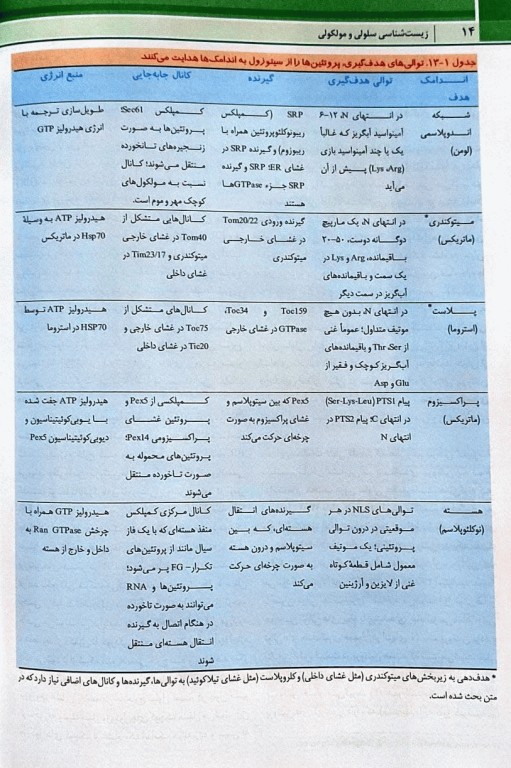 ۱۴
زیست‌شناسی سلولی و مولکولی
جدول ۱-۱۳. توالی‌های هدف‌گیری، پروتئین‌ها را از سیتوزول به اندامک‌ها هدایت می‌کنند
انـدامـک هدف
توالی هدف‌گیری
گیرنده
کانال جابه‌جایی
منبع انرژی
شـبـکه
اندوپلاسمی
(لومن)
در انـتهای N، ۱۲-۶
آمینواسید آبگریز که غالباً
یک یا چند آمینواسید بازی
(Lys ،Arg) پـیش از آن
می‌آید
SRP (کـمپلکس
ریبونوکلئوپروتئین همراه با
ریبوزوم) و گیرنده SRP در
غشای ER؛ SRP و گیرنده
SRP جـزء GTPaseها
هستند
کـمـپلکس Sec61؛
پـروتئین‌ها بـه صـورت
زنـجیره‌های تـانخورده
منتقل می‌شوند؛ کانال
نسبت به مـولکول‌های
کوچک مهر و موم است.
طویل‌سازی ترجمه با
انرژی هیدرولیز GTP
مـیتوکندری*
(ماتریکس)
در انتهای N، یک مـارپیچ
دوگـانه دوست، ۵۰-۲۰
بـاقیمانده، Arg و Lys در
یک سمت و باقیمانده‌های
آب‌گریز در سمت دیگر
گیرنده ورودی Tom20/22
در غشــای خــارجــی
میتوکندری
کـانال‌هایی متشکل از
Tom40 در غشای خارجی
میتوکندری و Tim23/17 در
غشای داخلی
هـیدرولیز ATP بـه وسیلهٔ
Hsp70 در ماتریکس
پـلاست*
(استروما)
در انتهای N، بدون هیچ
موتیف متداول؛ عموماً غنی
از Thr ،Ser و باقیمانده‌های
آب‌گریز کـوچک و فـقیر از
Glu و Asp
Toc159 و Toc34،
GTPase در غشای خارجی
کـانال‌های مـتشکل از
Toc75 در غشای خارجی و
Tic20 در غشای داخلی
هـیدرولیز ATP تـوسط
HSP70 در استروما
پـراکسـیزوم
(ماتریکس)
پیام PTS1 (Ser-Lys-Leu)
در انتهای C؛ پیام PTS2 در
انتهای N
Pex5 که بین سیتوپلاسم و
غشای پراکسیزوم به صورت
چرخه‌ای حرکت می‌کند
کـمپلکسی از Pex5 و
پـروتئین غشــای
پـراکـسیزومی Pex14؛
پروتئین‌های محموله به
صورت تاخورده منتقل
می‌شوند
هیدرولیز ATP جفت شده
بـا یـوبی‌کوئیتیناسیون و
دیوبی‌کوئیتیناسیون Pex5
هسته
(نوکلئوپلاسم)
توالی‌های NLS در هـر
مـوقعیتی در درون تـوالی
پـروتئینی؛ یک مـوتیف
معمول شامل قطعهٔ کوتاه
غنی از لایزین و آرژینین
گیرنده‌های انتقال
هسـته‌ای، کـه بـین
سیتوپلاسم و درون هسته
به صورت چرخه‌ای حرکت
می‌کند
کانال مرکزی کمپلکس
منفذ هسته‌ای که با یک فاز
سیال مانند از پروتئین‌های
تکرار- FG پـر می‌شود؛
پـروتئین‌ها و RNA
می‌توانند به صورت تاخورده
در هنگام اتصال به گیرنده
انتقال هسته‌ای منتقل
شوند
هیدرولیز GTP هـمراه با
چرخش Ran GTPase به
داخل و خارج از هسته
* هدف‌دهی به زیربخش‌های میتوکندری (مثل غشای داخلی) و کلروپلاست (مثل غشای تیلاکوئید) به توالی‌ها، گیرنده‌ها و کانال‌های اضافی نیاز دارد که در
متن بحث شده است.